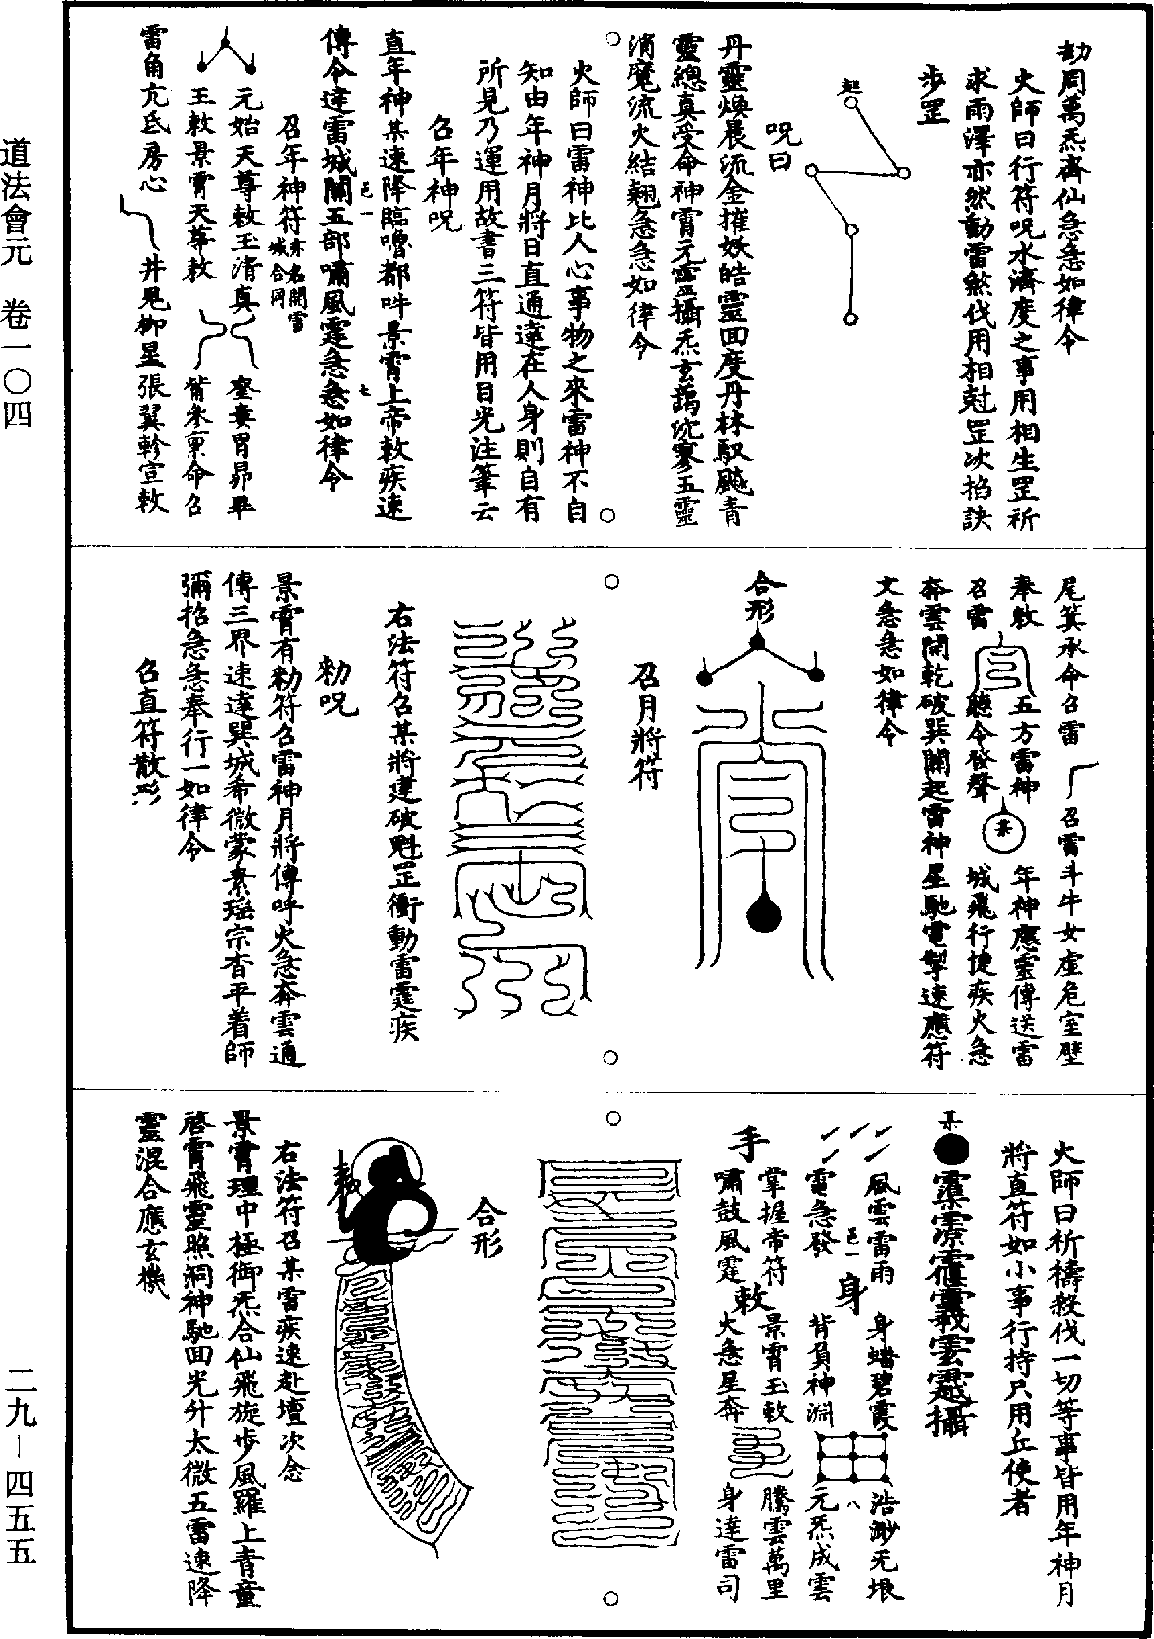 劫周萬炁齊仙急急如律令
火師曰行符呪水濟度之事用相生罡祈
求雨澤亦然動雷煞伐用相尅罡次掐訣
步罡
起
呪曰
丹靈煥晨流金摧妖皓靈回度丹林馭飈青
靈總真受命神霄元靈攝炁玄藹沈寥五靈
消魔流火結翹急急如律令
火師曰雷神比人心事物之來雷神不自
知由年神月將日直通達在人身則自有
所見乃運用故書三符皆用目光注筆云
召年神呪
直年神某速降臨嚕都吽景霄上帝敕疾速
傳令達雷城關五部嘯風霆急急如律令
召年神符亦名開雷城合同
元始天尊敕玉清真
王敕景霄天尊敕
奎婁胃昴畢
觜參稟命召
雷角亢氐房心
井鬼柳星張翼軫宣敕
尾箕承命召雷
召雷斗牛女虛危室壁
奉敕
五方雷神
年神應靈傳送雷
召雷
聽令發聲
某
城飛行捷疾火急
奔雲開乾破巽關起雷神星馳電掣速應符
文急急如律令
合形
召月將符
右法符召某將建破魁罡衝動雷霆疾
勑呪
景霄有勑符召雷神月將傳呼火急奔雲通
傳三界速達巽城希微蒙素瑶宗杳平着師
彌掐急急奉行一如律令
召直符散形
火師曰祈禱救伐一切等事皆用年神月
將直符如小事行持只用丘使者
某
攝
風雲雷雨
電急發
身
身蟠碧霞
背負神淵
浩渺无垠
元炁成雲
手
掌握帝符
嘯鼓風霆
敕
景霄玉敕
火急星奔
騰雲萬里
身達雷司
合形
敕
右法符召某雷疾速赴壇次念
景霄理中極御炁合仙飛旋步風羅上青童
啓霄飛靈照洞神馳回光廾太微五雷速降
靈混合應玄機
道法會元 卷一〇四
二九－四五五